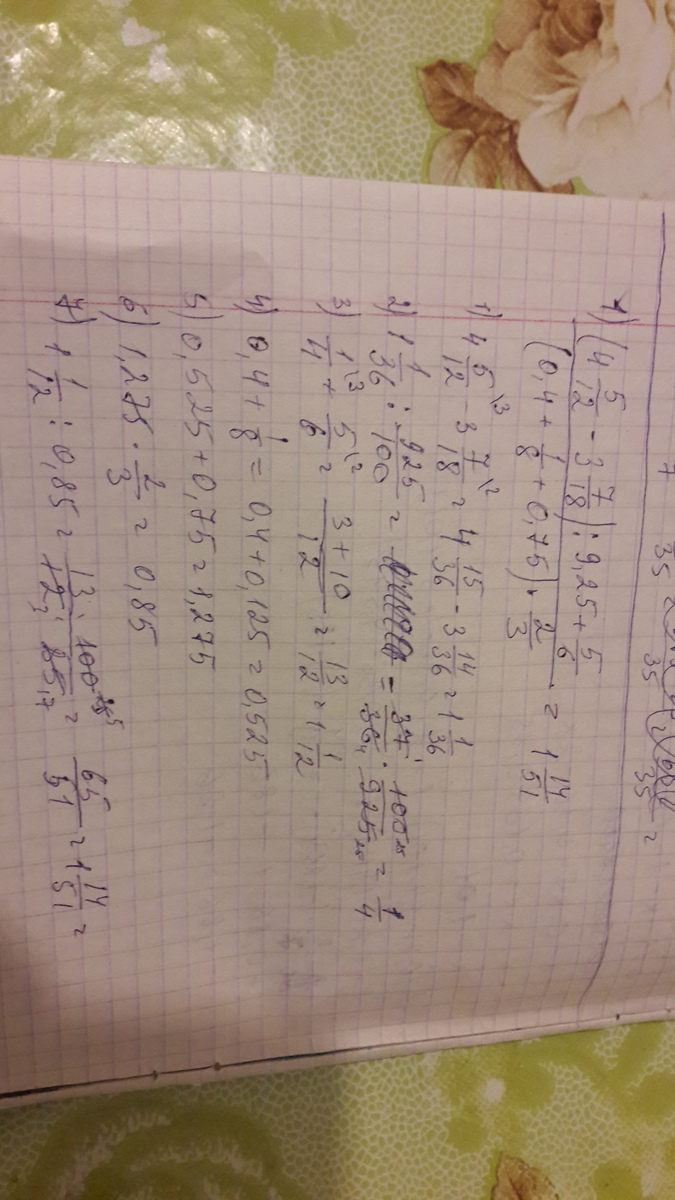 7
35
35
35 =
1) (4 5/12 - 3 7/18) : 9,25 + 5/6
(0,4 + 1/8 + 0,75) · 2/3 = 1 14/51
1) 4 5\3/12 - 3 7\2/18 = 4 15/36 - 3 14/36 = 1 1/36
2) 1 1/36 : 925/100 = = 37/36 · 100/925 = 1/4
3) 1\3/4 + 5\2/6 = 3 + 10/12 = 13/12 = 1 1/12
4) 0,4 + 1/8 = 0,4 + 0,125 = 0,525
5) 0,525 + 0,75 = 1,275
6) 1,275 · 2/3 = 0,85
7) 1 1/12 : 0,85 = 13/12 · 100/85 = 65/51 = 1 14/51 =